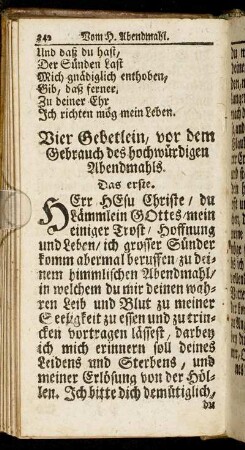 342 Vom H. Abendmahl.
Und daß du hast,
Der Sünden Last
Mich gnädiglich enthoben,
Gib, daß ferner,
Zu deiner Ehr
Ich richten mög mein Leben.
Vier Gebetlein, vor dem
Gebrauch des hochwürdigen
Abendmahls.
Das erste.
HErr HEsu Christe/ du
Lämmlein GOttes/mein
einiger Trost/ Hoffnung
und Leben/ ich grosser Sünder
komm abermal beruffen zu dei-
nem himmlischen Abendmahl/
in welchem du mir deinen wah-
ren Leib und Blut zu meiner
Seeligkeit zu essen und zu trin-
cken vortragen lässest, darbey
ich mich erinnern soll deines
Leidens und Sterbens, und
meiner Erlösung von der Höl-
len. Ich bitte dich demütiglich,
du